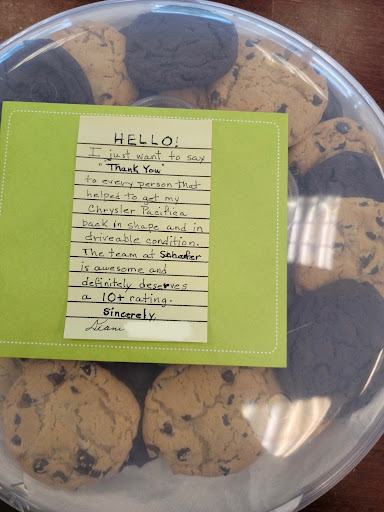 HELLO!
I just want to say
"Thank You"
to every person that
helped to get my
Chrysler Pacifica
back in shape and in
driveable condition.
The team at Schafer
is awesome and
definitely deserves
a 10+ rating.
Sincerely,